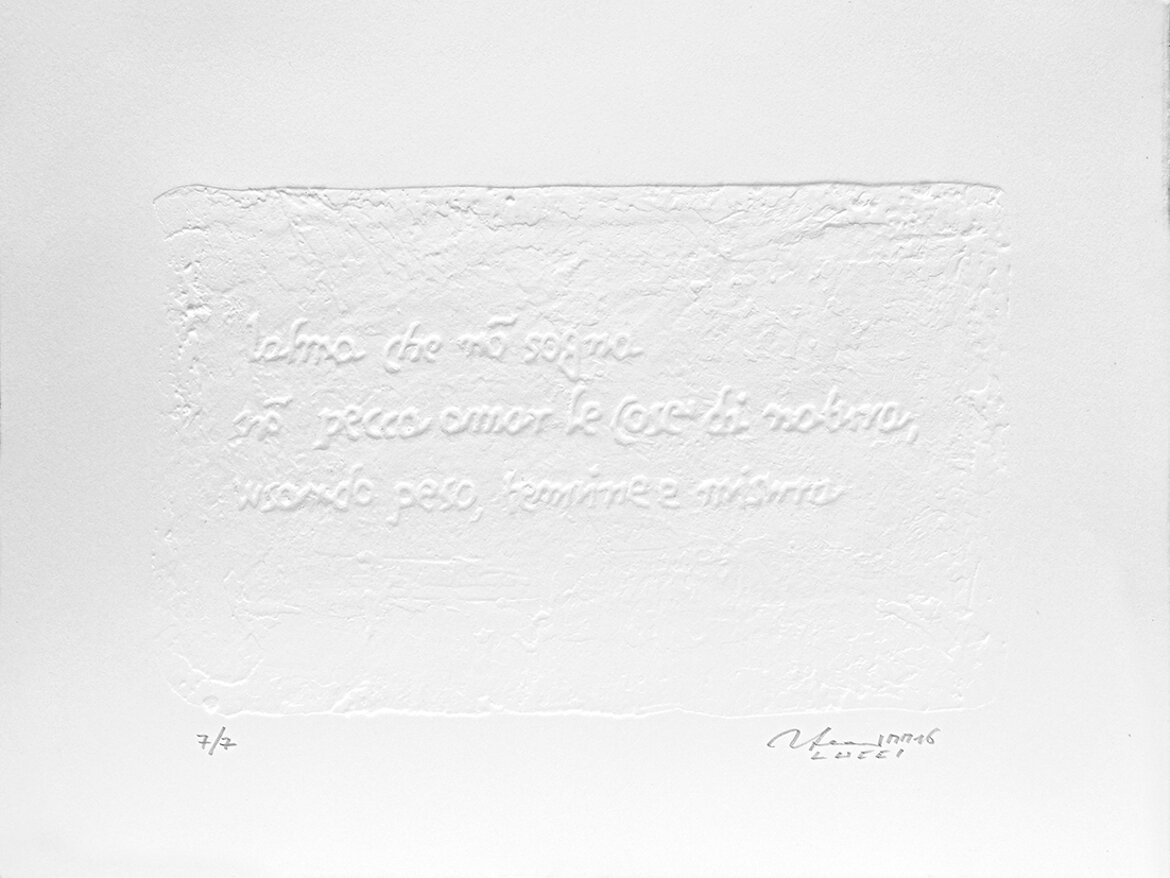 lalma che nõ sogna
nõ pecca amar le cose di natura,
usando peso, termine e misura
7/7
LUCCI